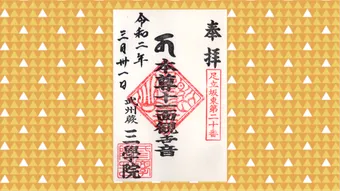 奉拝
足立坂東第二十番
本尊十一面観世音
令和二年
三月卅一日
武州蕨
三學院